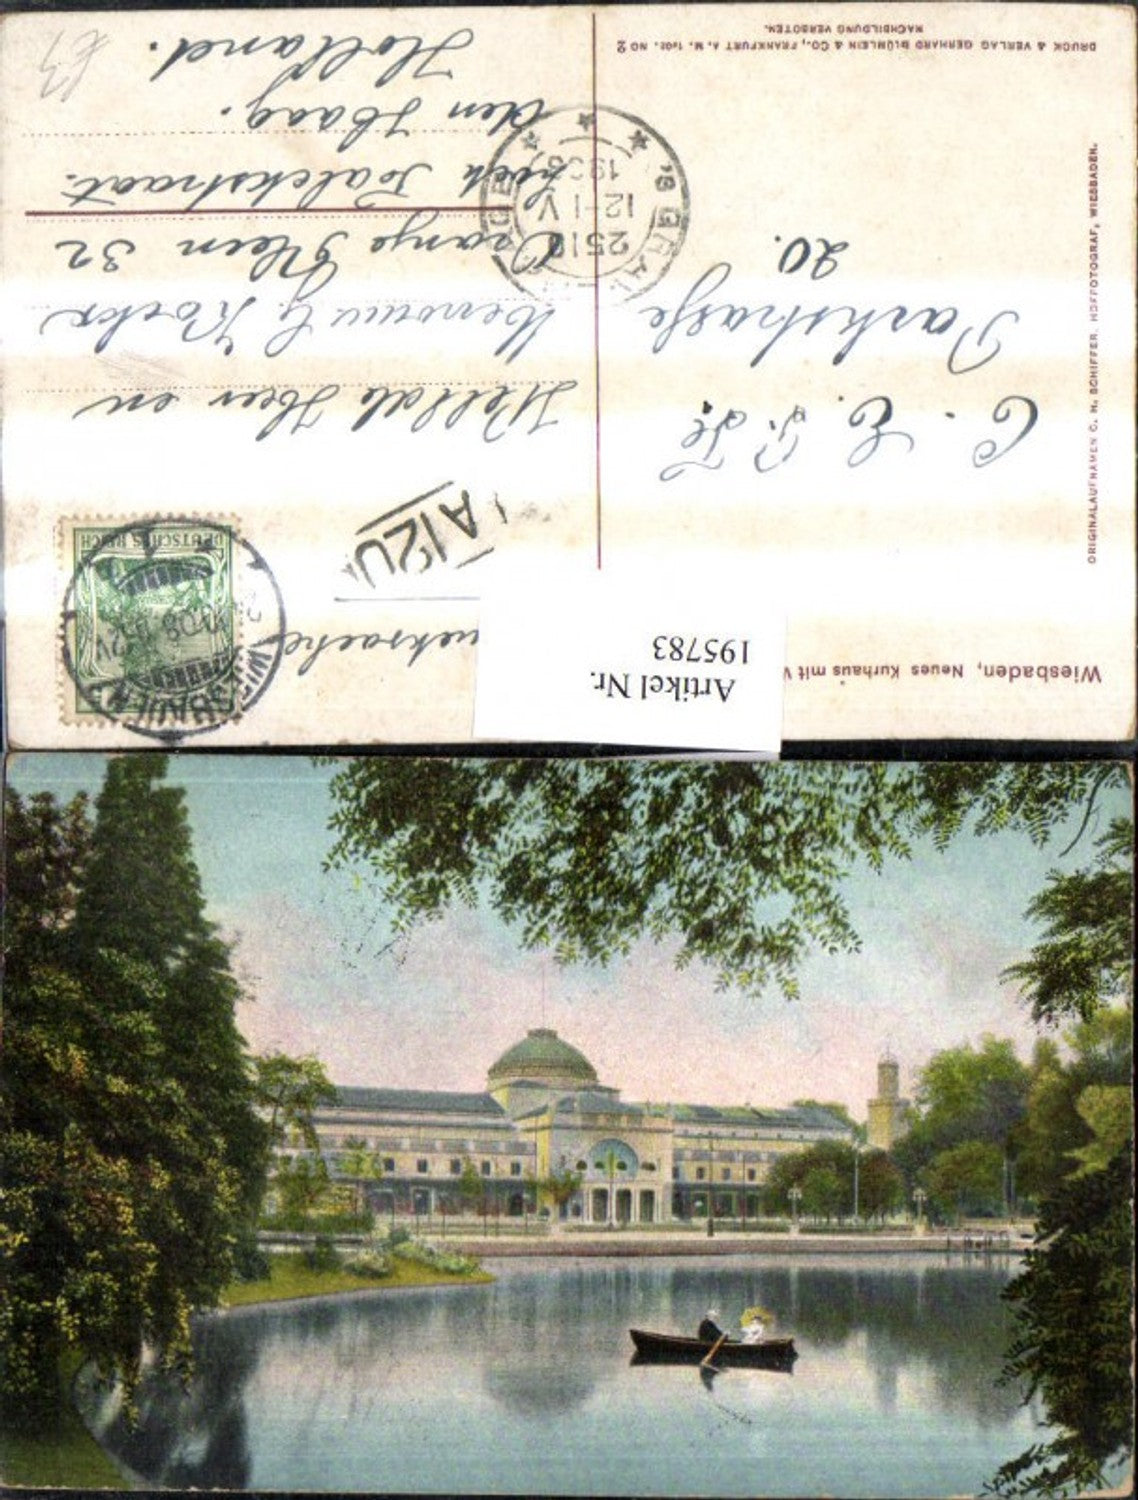 Wiesbaden, Neues Kurhaus mit
Artikel Nr.
195783
DEUTSCHES REICH
WIESBADEN
ORIGINALAUFNAHMEN C. H. SCHIFFER, HOFFOTOGRAF, WIESBADEN.
C. E. P. F.
Parkstrasse
20.
Heer en
Mevrouw G.
Oranje Plein 32
hoek Falckstraat.
den Haag.
Holland.
'S GRAVENHAGE
2518
12-1 V
DRUCK & VERLAG GERHARD BLÜMLEIN & CO., FRANKFURT A. M. NO 2
NACHBILDUNG VERBOTEN.